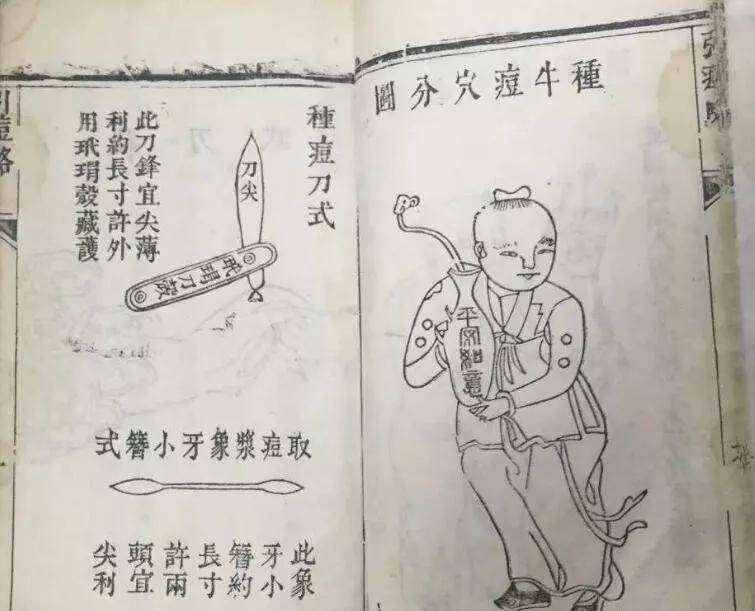 種牛痘穴分圖
平安如意
種痘刀式
此刀鋒宜尖薄
利約長寸許外
用玳瑁殼藏護
刀尖
玳瑁刀殼
取痘漿象牙小簪式
此象
牙小
簪約
長寸
許兩
頭宜
尖利
引痘略